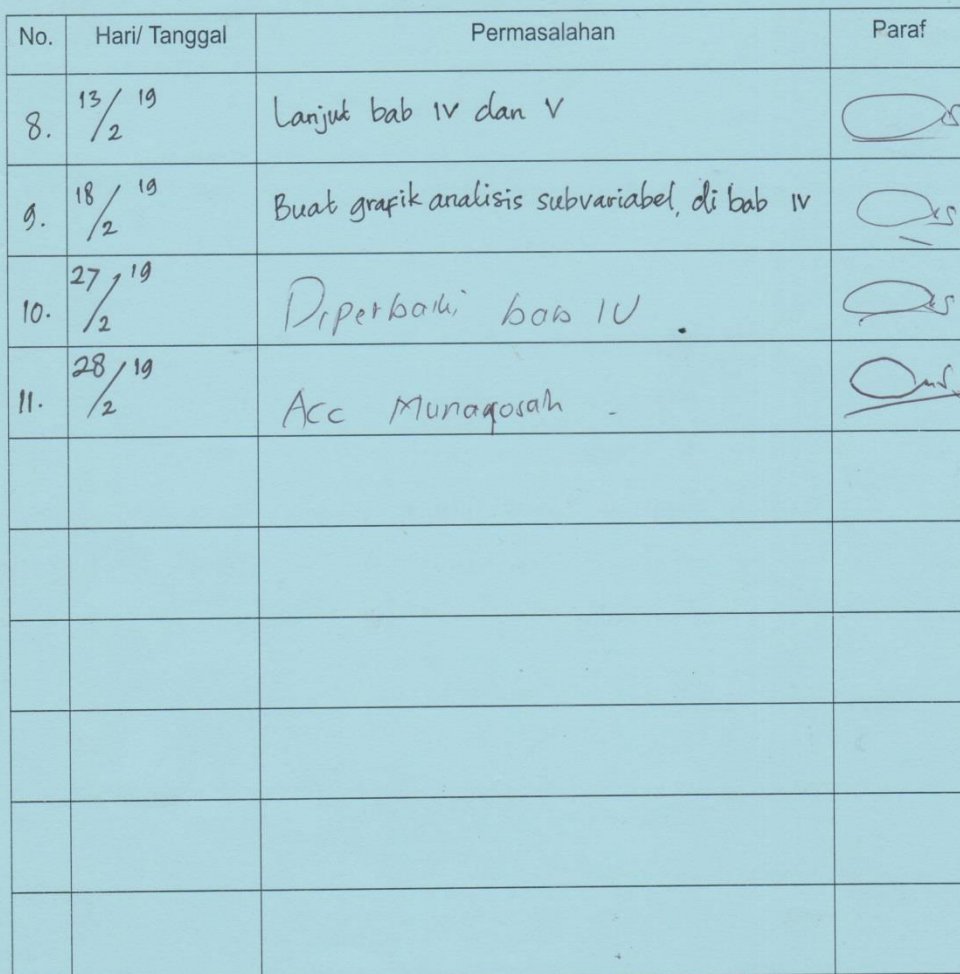 No. Hari/ Tanggal Permasalahan Paraf
8. 13/2 19 Lanjut bab IV dan V
9. 18/2 19 Buat grafik analisis subvariabel, di bab IV
10. 27/2 19 Diperbaiki bab IV .
11. 28/2 19 Acc Munaqosah -